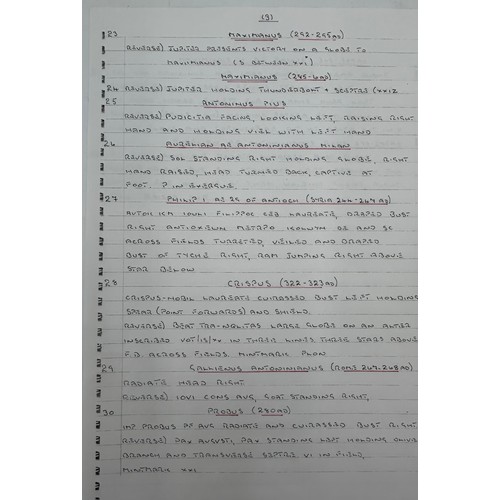 (3)
23 MAXIMIANUS (292-295AD)
REVERSE) JUPITER PRESENTS VICTORY ON A GLOBE TO
MAXIMIANUS (S BETWEEN XXI)
MAXIMIANUS (285-6AD)
24 REVERSE) JUPITER HOLDING THUNDERBOLT + SCEPTRE (XXIZ
25 ANTONINUS PIUS
REVERSE) PUDICITIA FACING, LOOKING LEFT, RAISING RIGHT
HAND AND HOLDING VIEL WITH LEFT HAND
26 AURELIAN AE ANTONINIANUS MILAN
REVERSE) SOL STANDING RIGHT HOLDING GLOBE, RIGHT
HAND RAISED, HEAD TURNED BACK, CAPTIVE AT
FOOT. P IN EXERGUE.
27 PHILIP I AE 25 OF ANTIOCH (SYRIA 244-249AD)
RIGHT
ACROSS FIELDS TURRETED, VEILED AND DRAPED
BUST OF TYCHE RIGHT, RAM JUMPING RIGHT ABOVE
STAR BELOW
28 CRISPUS (322-323AD)
CRISPUS-NOBIL LAUREATE CUIRASSED BUST LEFT HOLDING
SPEAR (POINT FORWARDS) AND SHIELD.
REVERSE) BEAT TRA-NQLITAS LARGE GLOBE ON AN ALTER
INSCRIBED VOT/IS/XX IN THREE LINES THREE STARS ABOVE
F.B. ACROSS FIELDS. MINTMARK PLON
29 GALLIENUS ANTONINIANUS (ROME 267-268AD)
RADIATE HEAD RIGHT
REVERSE) IOVI CONS AVG, GOAT STANDING RIGHT,
30 PROBUS (280AD)
IMP PROBUS PF AVG RADIATE AND CUIRASSED BUST RIGHT
REVERSE) PAX AUGUSTI, PAX STANDING LEFT HOLDING OLIVE
BRANCH AND TRANSVERSE SEPTRE. VI IN FIELD,
MINTMARK XXI